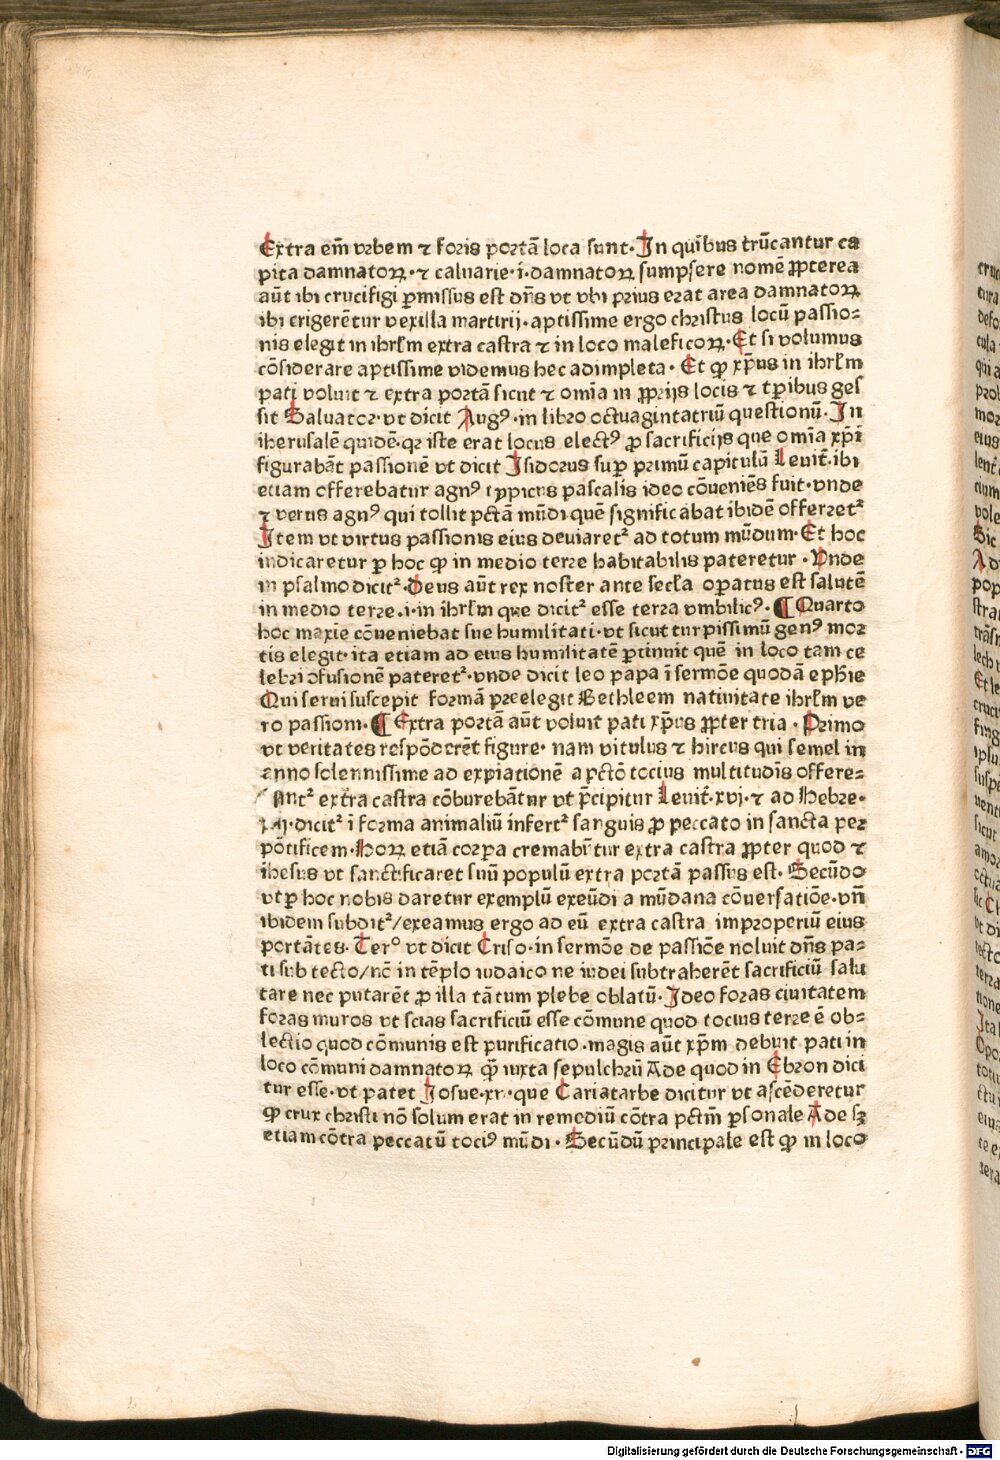 Extra em̄ vrbem ⁊ foris portā loca sunt· In quibus trūcantur ca
pita damnatoꝝ·⁊ caluarie·i·damnatoꝝ sumpsere nomē ꝓpterea
aūt ibi crucifigi ꝑmissus est dn̄s vt vbi prius erat area damnatoꝝ
ibi erigerētur vexilla martirij·aptissime ergo christus locū passio⸗
nis elegit in ihrlm̄ extra castra ⁊ in loco maleficoꝝ·Et si volumus
cōsiderare aptissime videmus hec adimpleta· Et ꝙ xp̄us in ihrlm̄
pati voluit ⁊ extra portā sicut ⁊ omīa in ꝓprijs locis ⁊ tꝑibus ges
sit Saluator·vt dicit Augꝰ·in libro octuagintatriū questionū·In
iherusalē quidē·qꝛ iste erat locus electꝰ ꝓ sacrificijs que omīa xp̄i
figurabāt passionē vt dicit Isidorus suꝑ primū capitulū Leuit̄·ibi
etiam offerebatur agnꝰ typicus pascalis ideo cōueniēs fuit·vnde
⁊ verus agnꝰ qui tollit pctā mūdi quē significabat ibidē offerret᷑
Item vt virtus passionis eius deuiaret᷑ ad totum mūdum·Et hoc
indicaretur ꝑ hoc ꝙ in medio terre habitabilis pateretur·Vnde
in psalmo dicit᷑·Deus aūt rex noster ante secl̄a oꝑatus est salutē
in medio terre·i·in ihrlm̄ que dicit᷑ esse terra vmbilicꝰ·¶ Quarto
hoc maxīe cōueniebat sue humilitati·vt sicut turpissimū genꝰ mor
tis elegit·ita etiam ad eius humilitatē ꝑtinuit quē in loco tam ce
lebri ↄfusionē pateret᷑·vnde dicit leo papa ī sermōe quodā ephīe
Qui serui suscepit formā preelegit Bethleem natiuitate ihrlm̄ ve
ro passioni·¶ Extra portā aūt voluit pati xp̄us ꝓpter tria·Primo
vt veritates respōderēt figure· nam vitulus ⁊ hircus qui semel in
anno solennissime ad expiationē a pctō tocius multitudīs offere⸗
᷑ extra castra cōburebātur vt p̄cipitur Leuit̄·xvj·⁊ ad Hebre·
·dicit᷑ ī forma animaliū infert᷑ sanguis ꝓ peccato in sancta per
pōtificem·Hoꝝ etiā corpa cremabūtur extra castra ꝓpter quod ⁊
ihesus vt sanctificaret suū populū extra portā passus est·Secūdo
vt ꝑ hoc nobis daretur exemplū exeūdi a mūdana cōuersatiōe·vn̄
ibidem subdit᷑/exeamus ergo ad eū extra castra improperiū eius
portātes·Terᵒ vt dicit Criso·in sermōe de passiōe noluit dn̄s pa⸗
ti sub tecto/nō in tēplo iudaico ne iudei subtraherēt sacrificiū salu
tare nec putarēt ꝓ illa tātum plebe oblatū·Ideo foras ciuitatem
foras muros vt scias sacrificiū esse cōmune quod tocius terre ē ob⸗
lectio quod cōmunis est purificatio·magis aūt xp̄m debuit pati in
loco cōmuni damnatoꝝ ꝙ̄ iuxta sepulchrū Ade quod in Ebron dici
tur esse·vt patet Iosue·xv·que Cariatarbe dicitur vt ascēderetur
ꝙ crux christi nō solum erat in remediū cōtra pctm̄ ꝑsonale Ade sꝫ
etiam cōtra peccatū tociꝰ mūdi·Secūdū principale est ꝙ in loco
Digitalisierung gefördert durch die Deutsche Forschungsgemeinschaft · DFG